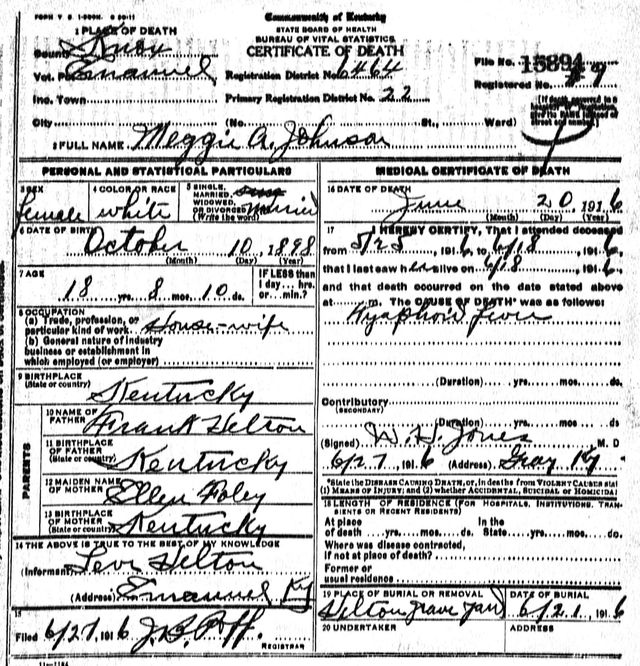 FORM V. S. 1-50M. 6 30-11
Commonwealth of Kentucky
STATE BOARD OF HEALTH
BUREAU OF VITAL STATISTICS
CERTIFICATE OF DEATH
1 PLACE OF DEATH
County Knox
Vot. Pct Emanuel
Inc. Town
City (No. St., Ward)
Registration District No. 6464
Primary Registration District No. 22
File No. 15894
Registered No. 49
[If death occurred in a hospital or institution, give its NAME instead of street and number.]
2 FULL NAME Meggie A. Johnson
PERSONAL AND STATISTICAL PARTICULARS
3 SEX female
4 COLOR OR RACE white
5 SINGLE, MARRIED, WIDOWED, OR DIVORCED (Write the word) Married
6 DATE OF BIRTH October 10, 1898
(Month) (Day) (Year)
7 AGE 18 yrs. 8 mos. 10 ds.
IF LESS than 1 day... hrs. or... min.?
8 OCCUPATION
(a) Trade, profession, or particular kind of work House-wife
(b) General nature of industry business or establishment in which employed (or employer)
9 BIRTHPLACE (State or country) Kentucky
PARENTS
10 NAME OF FATHER Frank Helton
11 BIRTHPLACE OF FATHER (State or country) Kentucky
12 MAIDEN NAME OF MOTHER Ellen Foley
13 BIRTHPLACE OF MOTHER (State or country) Kentucky
14 THE ABOVE IS TRUE TO THE BEST OF MY KNOWLEDGE
(Informant) Levi Helton
(Address) Emanuel Ky
15
Filed 6/27 1916 J.B. Poff.
REGISTRAR
11-1184
MEDICAL CERTIFICATE OF DEATH
16 DATE OF DEATH June 20, 1916
(Month) (Day) (Year)
17 I HEREBY CERTIFY, That I attended deceased
from 5/25, 1916, to 6/18, 1916,
that I last saw her alive on 6/18, 1916,
and that death occurred on the date stated above
at m. The CAUSE OF DEATH* was as follows:
Fever
(Duration) yrs. mos. ds.
Contributory
(SECONDARY)
(Duration) yrs. mos. ds
(Signed) W. H. Jones M. D
6/27 1916 (Address) Gray Ky
*State the DISEASE CAUSING DEATH, or, in deaths from VIOLENT CAUSES stat
(1) MEANS OF INJURY; and (2) whether ACCIDENTAL, SUICIDAL or HOMICIDAL
18 LENGTH OF RESIDENCE (FOR HOSPITALS, INSTITUTIONS, TRANSIENTS OR RECENT RESIDENTS)
At place of death yrs. mos. ds. In the State yrs. mos. ds.
Where was disease contracted, if not at place of death?
Former or usual residence
19 PLACE OF BURIAL OR REMOVAL Helton grave yard
DATE OF BURIAL 6/21, 1916
20 UNDERTAKER
ADDRESS